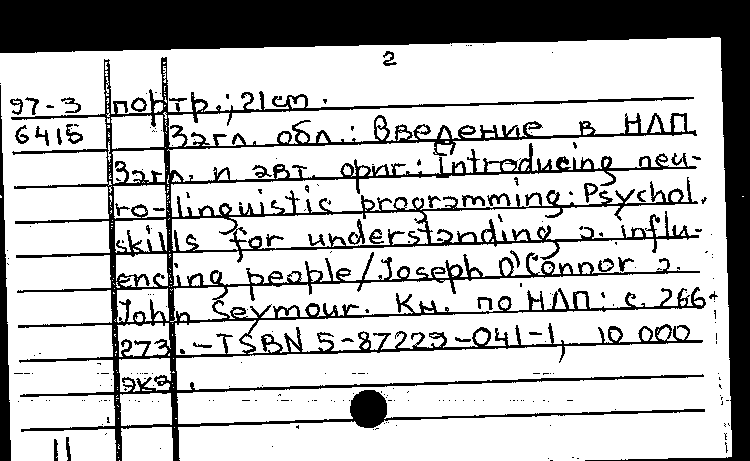 2
97-3 портр.; 21cm.
6415 Загл. обл.: Введение в НЛП
Загл. и авт. ориг.: Introducing neu-
ro-linguistic programming: Psychol.
skills for understanding a. influ-
encing people/Joseph O'Connor a.
John Seymour. Кн. по НЛП: с. 266-
273. - ISBN 5-87229-041-1, 10 000
экз.
11